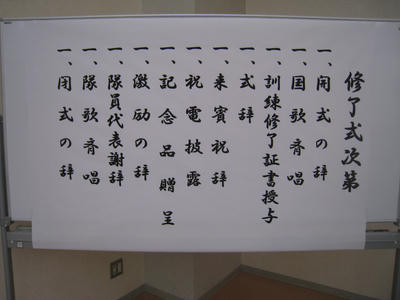 修了式次第
一、開式の辞
一、国歌斉唱
一、訓練修了証書授与
一、式辞
一、来賓祝辞
一、祝電披露
一、記念品贈呈
一、激励の辞
一、隊員代表謝辞
一、隊歌斉唱
一、閉式の辞